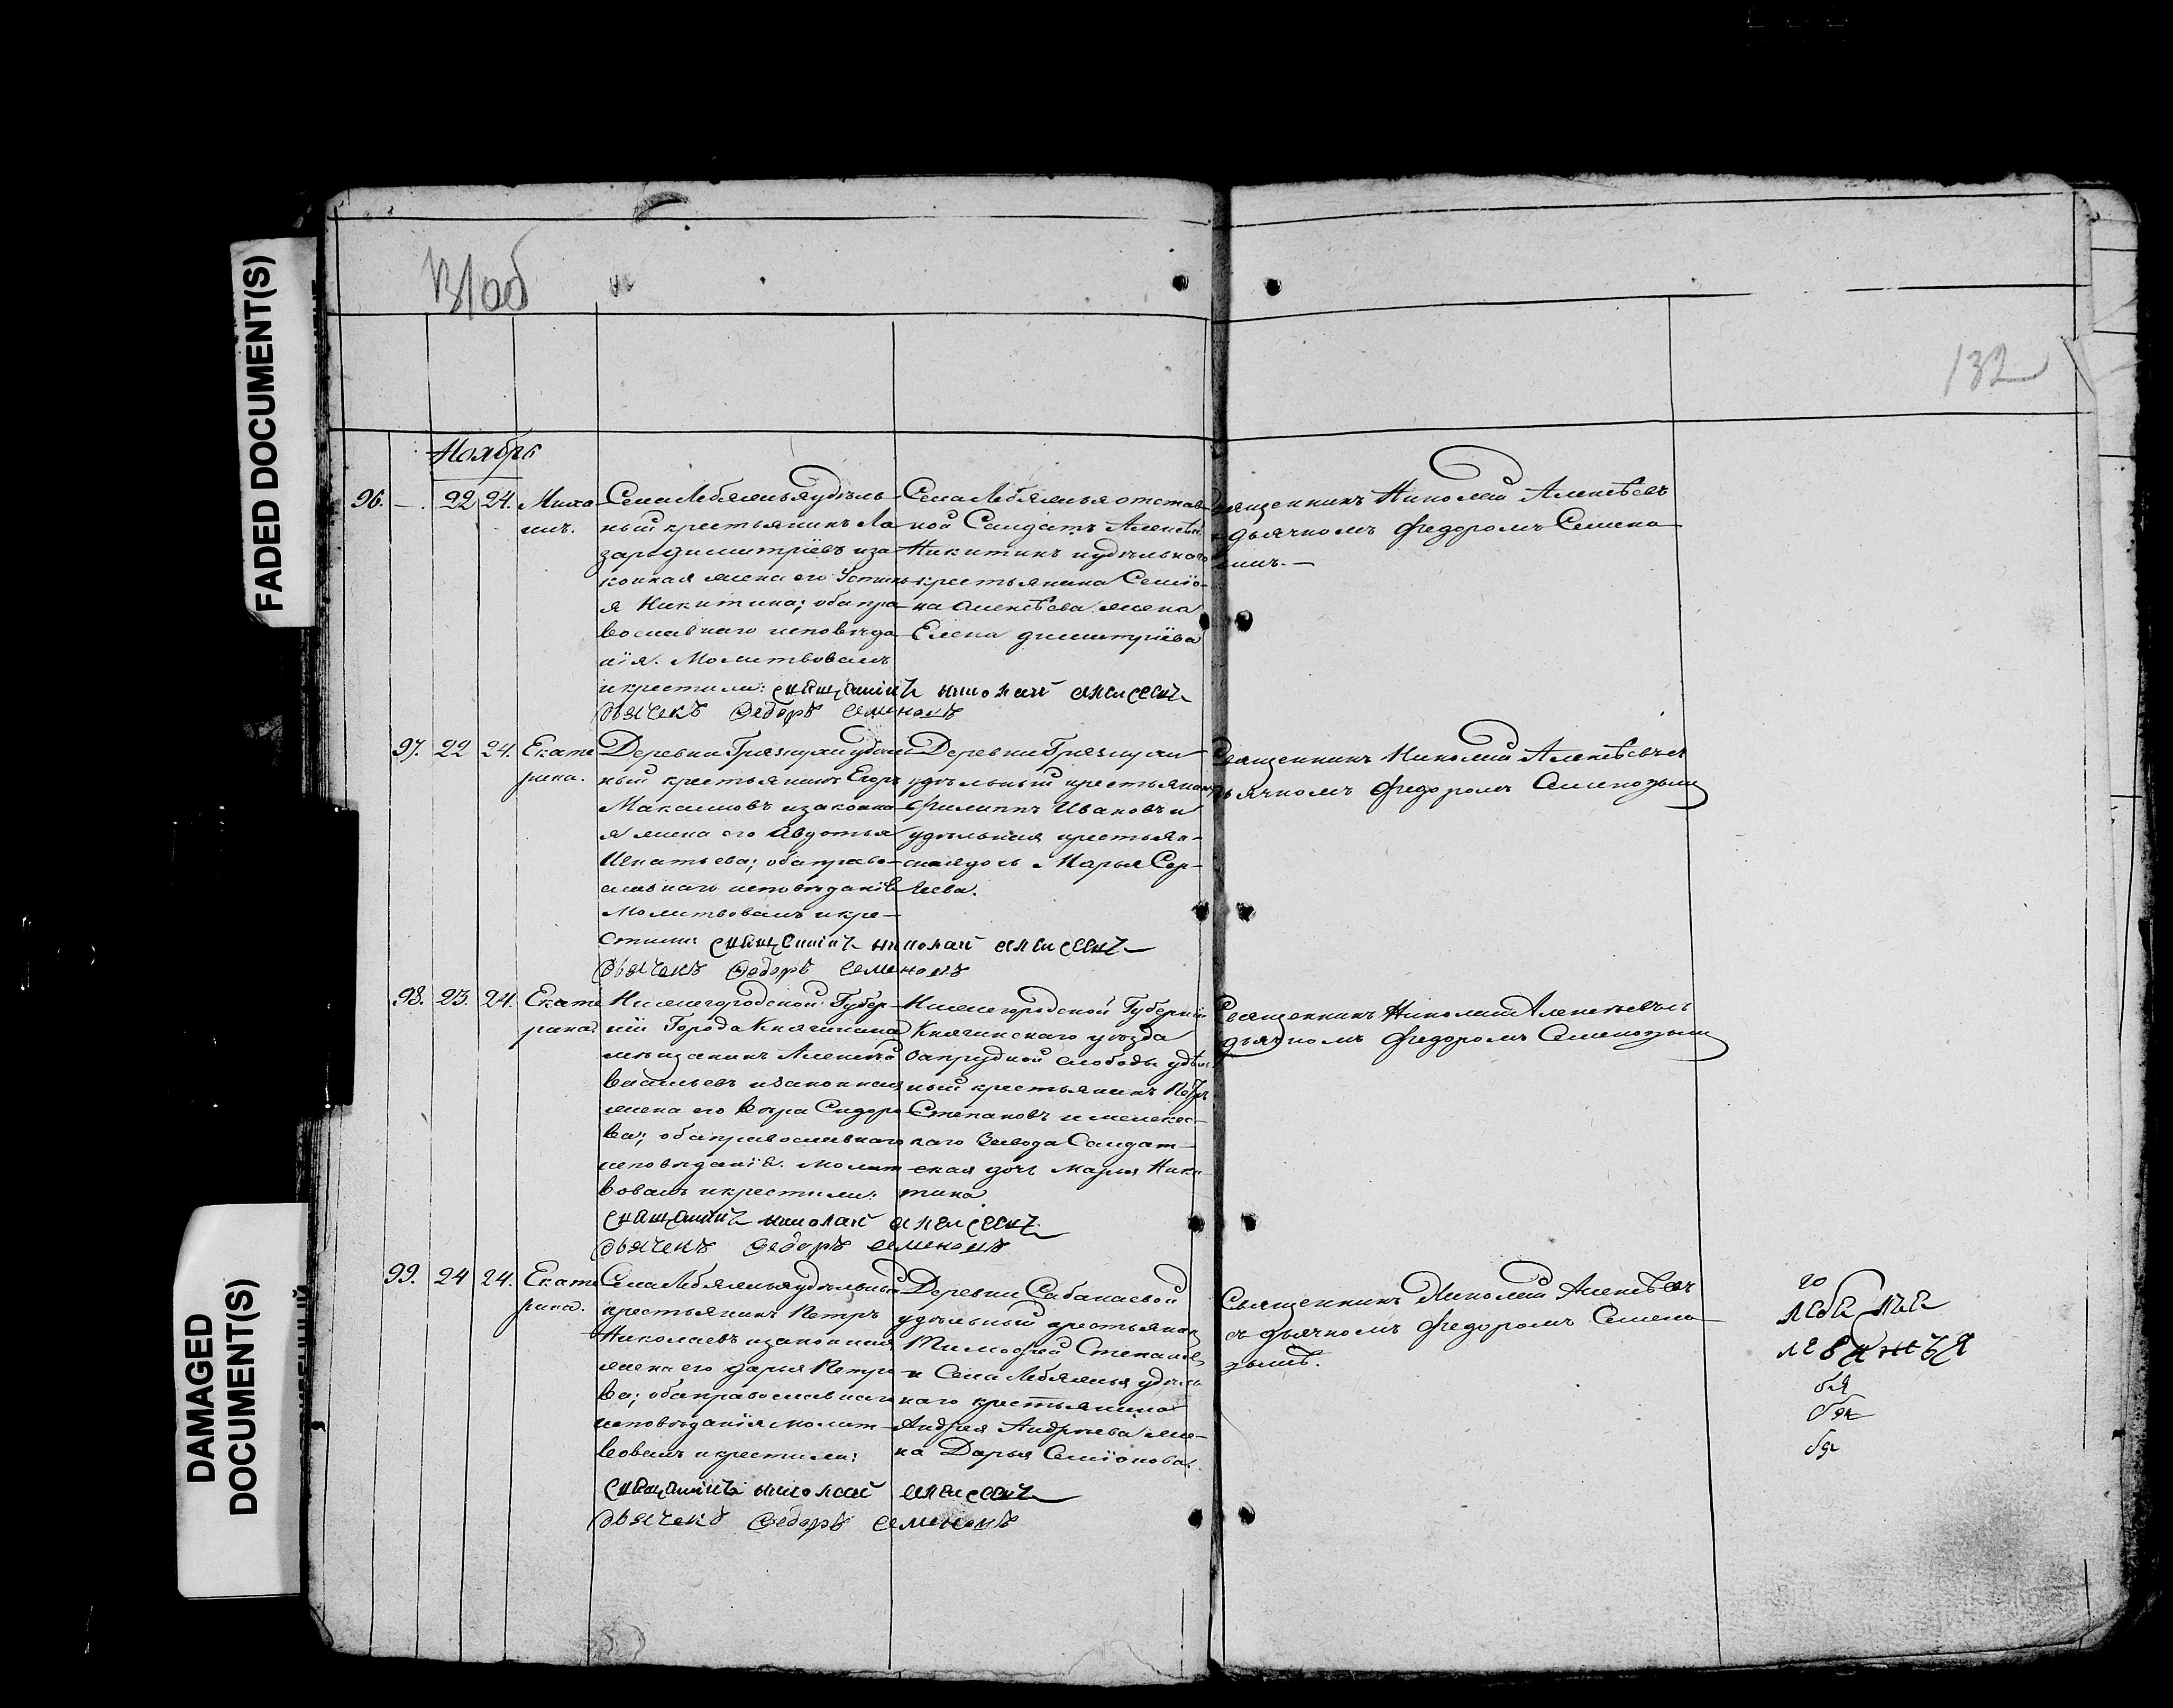 FADED DOCUMENT(S)
DAMAGED
DOCUMENT(S)
131об
132
Ноябрь
96. — 22 24. Миха
илъ.
Села Лебяжья удѣль
ный крестьянинъ Ла
зарь Димитріевъ иза
конная жена его Устинь
я Никитина; оба пра
вославнаго исповѣда
нія. Молитвовалъ
и крестили: священникъ николай алексеевъ
дьячекъ Федоръ семеновъ
Села Лебяжья отстав
ной Солдатъ Алексѣй
Никитинъ и удѣльнаго
крестьянина Семіо
на Алексѣева жена
Елена Димитріева
Священникъ Николай Алексѣевъ
съ дьячкомъ Федоромъ Семено
вымъ. —
97. 22 24. Екате
рина.
Деревни Грязнухи удѣль
ный крестьянинъ Егоръ
Максимовъ и законна
я жена его Авдотья
Игнатьева; оба право
славнаго исповѣданіе
Молитвовалъ и кре—
стили: священникъ николай алексеевъ
дьячекъ Федоръ семеновъ
Деревни Грязнухи
удѣльный крестьянинъ
Филиппъ Ивановъ и
удѣльная крестьян—
ская дочь Марья Сер—
геева.
Священникъ Николай Алексѣевъ съ
дьячкомъ Федоромъ Семеновымъ
98. 23. 24. Екате
рина
Нижегородской Губер—
ніи Города Княгинина
мѣщанинъ Алексѣй
Васильевъ и законная
жена его Вѣра Сидоро
ва; оба православнаго
исповѣданіе. Молит
вовалъ и крестили:
священникъ николай алексеевъ
дьячекъ Федоръ семеновъ
Нижегородской Губерніи
Княгинскаго уѣзда
Запрудной слободы удѣль
ный крестьянинъ Петръ
Степановъ и мелекес—
каго Завода Солдат—
ская дочь Марья Ники
тина
Священникъ Николай Алексѣевъ съ
дьячкомъ Федоромъ Семеновымъ
99. 24 24. Екате
рина.
Села Лебяжья удѣльный
крестьянинъ Петръ
Николаевъ и законная
жена его Дарья Петро
ва; оба православнаго
исповѣданія молит—
вовалъ и крестили:
священникъ николай алексеевъ
дьячекъ Федоръ семеновъ
Деревни Сабакаевой
удѣльный крестьянинъ
Тимофей Степановъ
и Села Лебяжья удѣль
наго крестьянина
Андрея Андреева же—
на Дарья Семіонова.
Священникъ Николай Алексѣевъ
съ дьячкомъ Федоромъ Семено—
вымъ.
лебяжъя
бя